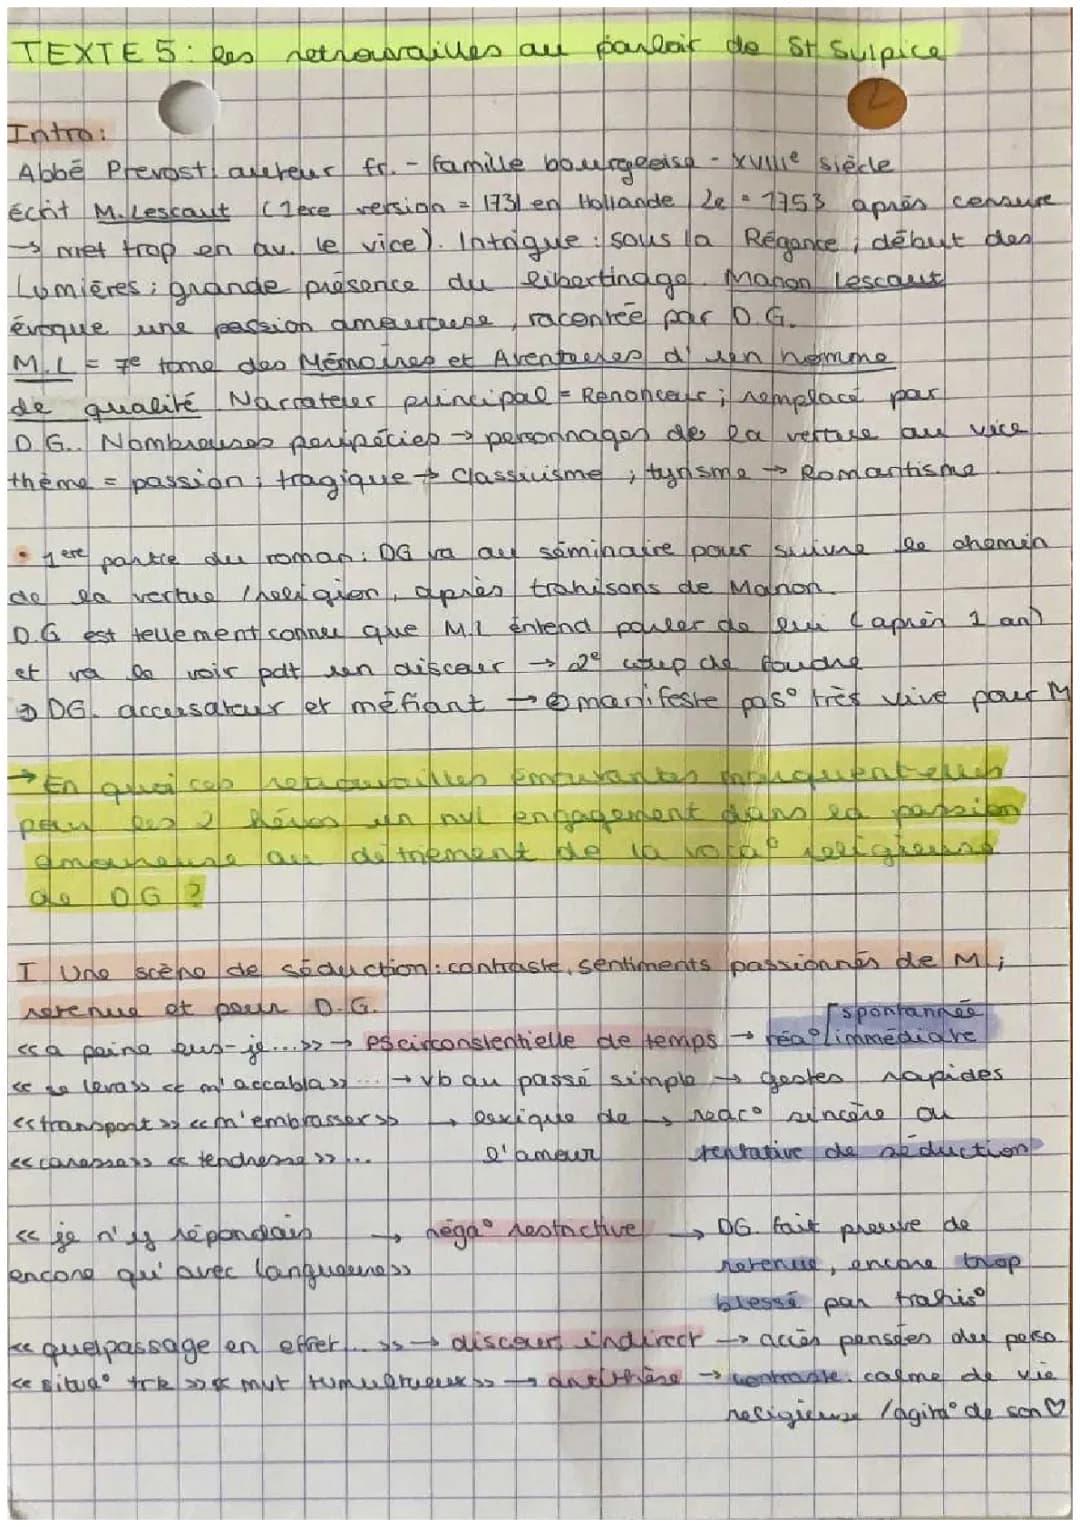 TEXTE 5 : les retrouvailles au parloir de St Sulpice
2
Intro :
Abbé Prevost, auteur fr. - famille bourgeoise - XVIIIe siècle
écrit M. Lescaut (1ère version = 1731 en Hollande, 2e = 1753 après censure
→ met trop en av. le vice). Intrigue : sous la Régence ; début des
Lumières ; grande présence du libertinage. Manon Lescaut
évoque une passion amoureuse, racontée par D.G.
M.L = 7e tome des Mémoires et Aventures d'un homme
de qualité. Narrateur principal = Renoncour ; remplacé par
D.G.. Nombreuses péripéties → personnages de la vertu au vice
thème = passion ; tragique → Classisisme ; lyrisme → Romantisme.
• 1ere partie du roman : DG va au séminaire pour suivre le chemin
de la vertue / religion, après trahisons de Manon.
D.G est tellement connu que M.L entend parler de lui (après 1 an)
et va le voir pdt un discour → 2e coup de foudre
DG. accusateur et méfiant → manifeste pas° très vive pour M
→ En quoi ces retrouvailles émouvantes marquent-elles
pour les 2 héros un nvl engagement dans la passion
amoureuse au détriment de la voca° religieuse
de DG ?
I Une scène de séduction : contraste, sentiments passionnés de M ;
retenue et peur D.G.
«a peine eus-je...» → circonstentielle de temps → réa° immédiate
spontannée
«se leva» «m'accabla» ... → vb au passé simple → gestes rapides
«transport» «m'embrasser» → lexique de → réac° sincère ou
«caresses» «tendresse» ... l'amour tentative de séduction
«je n'y répondais → néga° restrictive → DG. fait preuve de
encore qu'avec langueur» retenue, encore trop
blessé par trahis°
«quel passage en effet...» → discours indirect → accès pensées du perso
«situa° trk» «mvt tumultueux» → antithèse → contraste : calme de vie
religieuse / agita° de son ♡